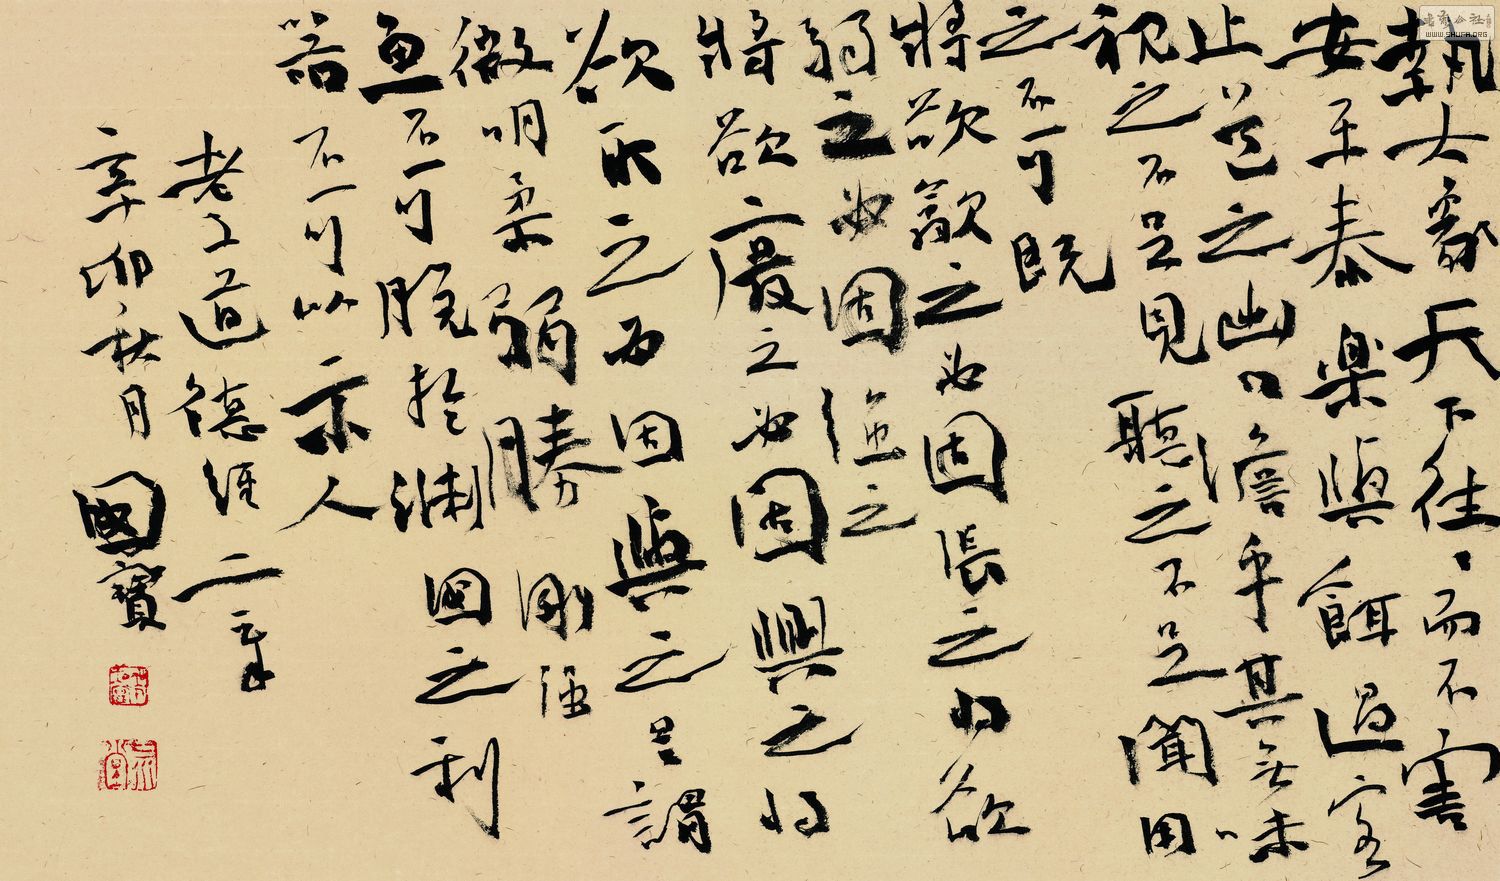 執大象天下往往而不害
安平泰樂與餌過客
止道之出口澹乎其无味
視之不足見聽之不足聞用
之不可既
將欲歙之必固張之將欲
弱之必固強之
將欲廢之必固興之將
欲取之而固與之是謂
微明柔弱勝剛強
魚不可脫於淵國之利
器不可以示人
老子道德經二章
辛卯秋月國寶
WWW.SHUFA.ORG